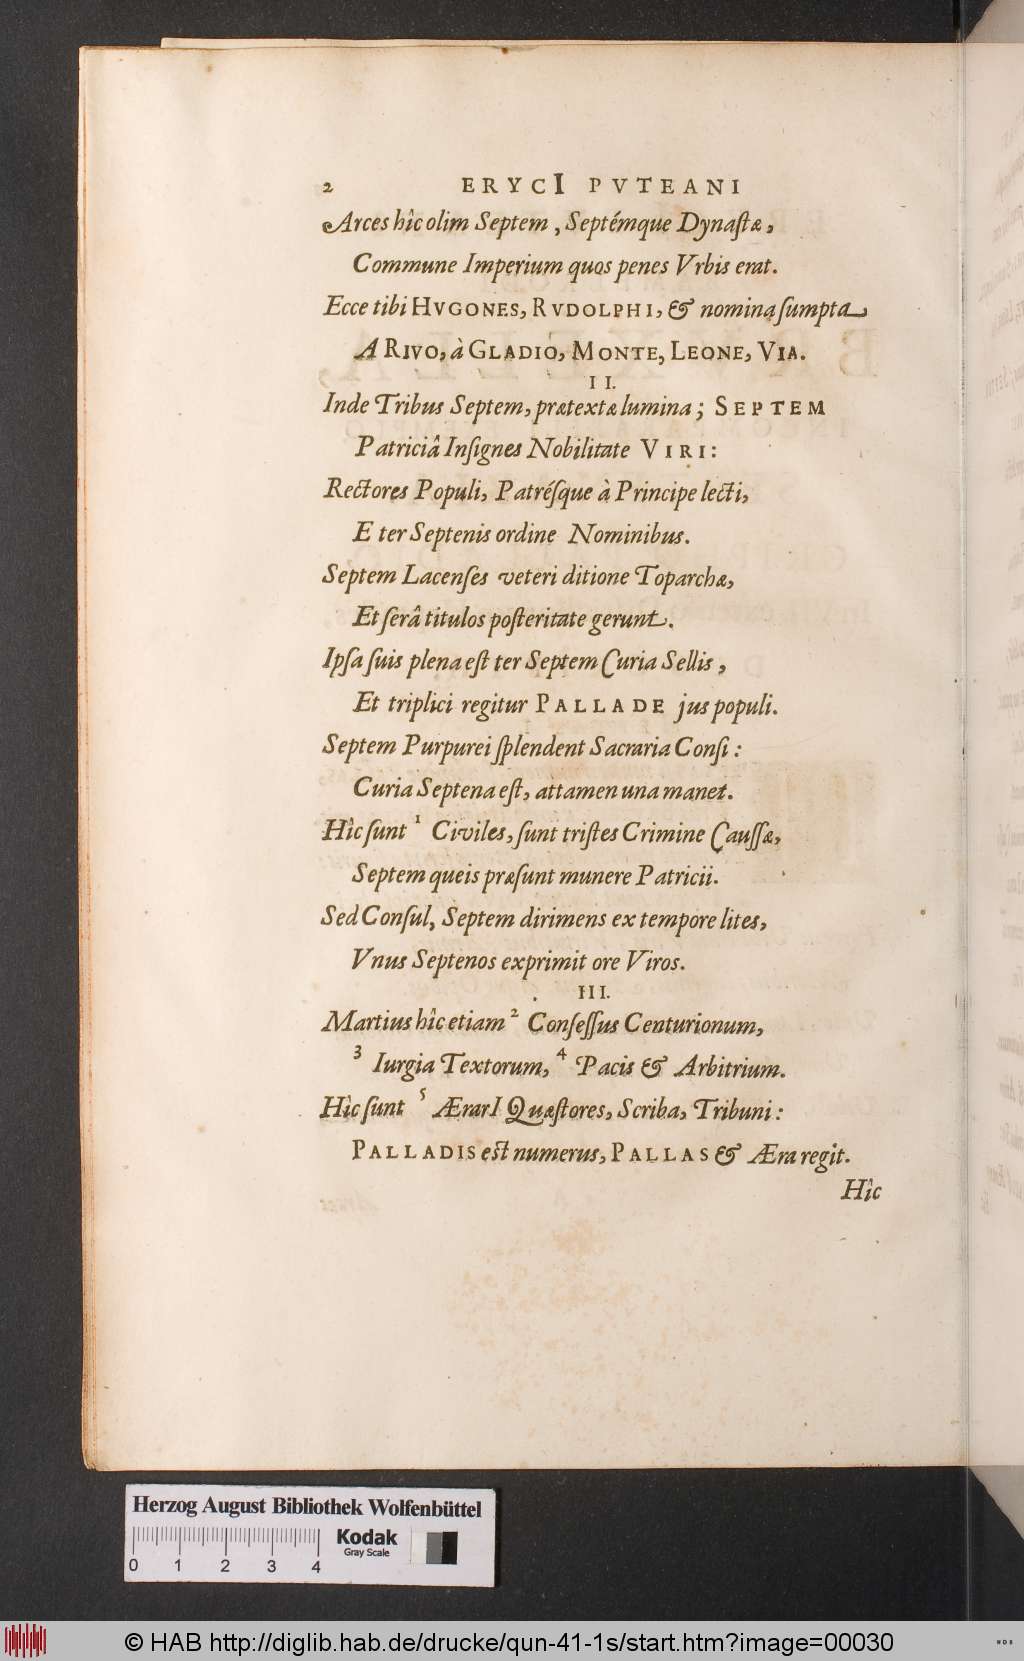 2 ERYCI PVTEANI
Arces hîc olim Septem, Septémque Dynaſtæ,
Commune Imperium quos penes Vrbis erat.
Ecce tibi HVGONES, RVDOLPHI, & nomina ſumpta
A RIVO, à GLADIO, MONTE, LEONE, VIA.
II.
Inde Tribus Septem, prætextæ lumina; SEPTEM
Patriciâ Inſignes Nobilitate VIRI:
Rectores Populi, Patréſque à Principe lecti,
E ter Septenis ordine Nominibus.
Septem Lacenſes veteri ditione Toparchæ,
Et ſerâ titulos poſteritate gerunt.
Ipſa ſuis plena eſt ter Septem Curia Sellis,
Et triplici regitur PALLADE jus populi.
Septem Purpurei ſplendent Sacraria Conſi:
Curia Septena eſt, attamen una manet.
Hîc ſunt 1 Civiles, ſunt triſtes Crimine Cauſſæ,
Septem queis præſunt munere Patricii.
Sed Conſul, Septem dirimens ex tempore lites,
Vnus Septenos exprimit ore Viros.
III.
Martius hîc etiam 2 Conſeſſus Centurionum,
3 Iurgia Textorum, 4 Pacis & Arbitrium.
Hîc ſunt 5 ÆrarI Quæſtores, Scriba, Tribuni:
PALLADIS eſt numerus, PALLAS & Æra regit.
Hîc
Herzog August Bibliothek Wolfenbüttel
Kodak
Gray Scale
0 1 2 3 4
© HAB http://diglib.hab.de/drucke/qun-41-1s/start.htm?image=00030